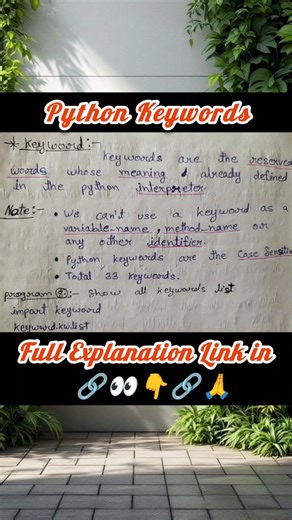 Python Keywords
* Keyword:-
Keywords are the reserved
words whose meaning already defined
in the python interpreter
Note:- • We can't use a keyword as a
variable-name, method-name or
any other identifier
• Python keywords are the Case Sensitiv
• Total 33 Keywords.
program ②:- Show all keywords list
import keyword
keyword.kwlist
Full Explanation Link in
🔗👀👇🔗🙏